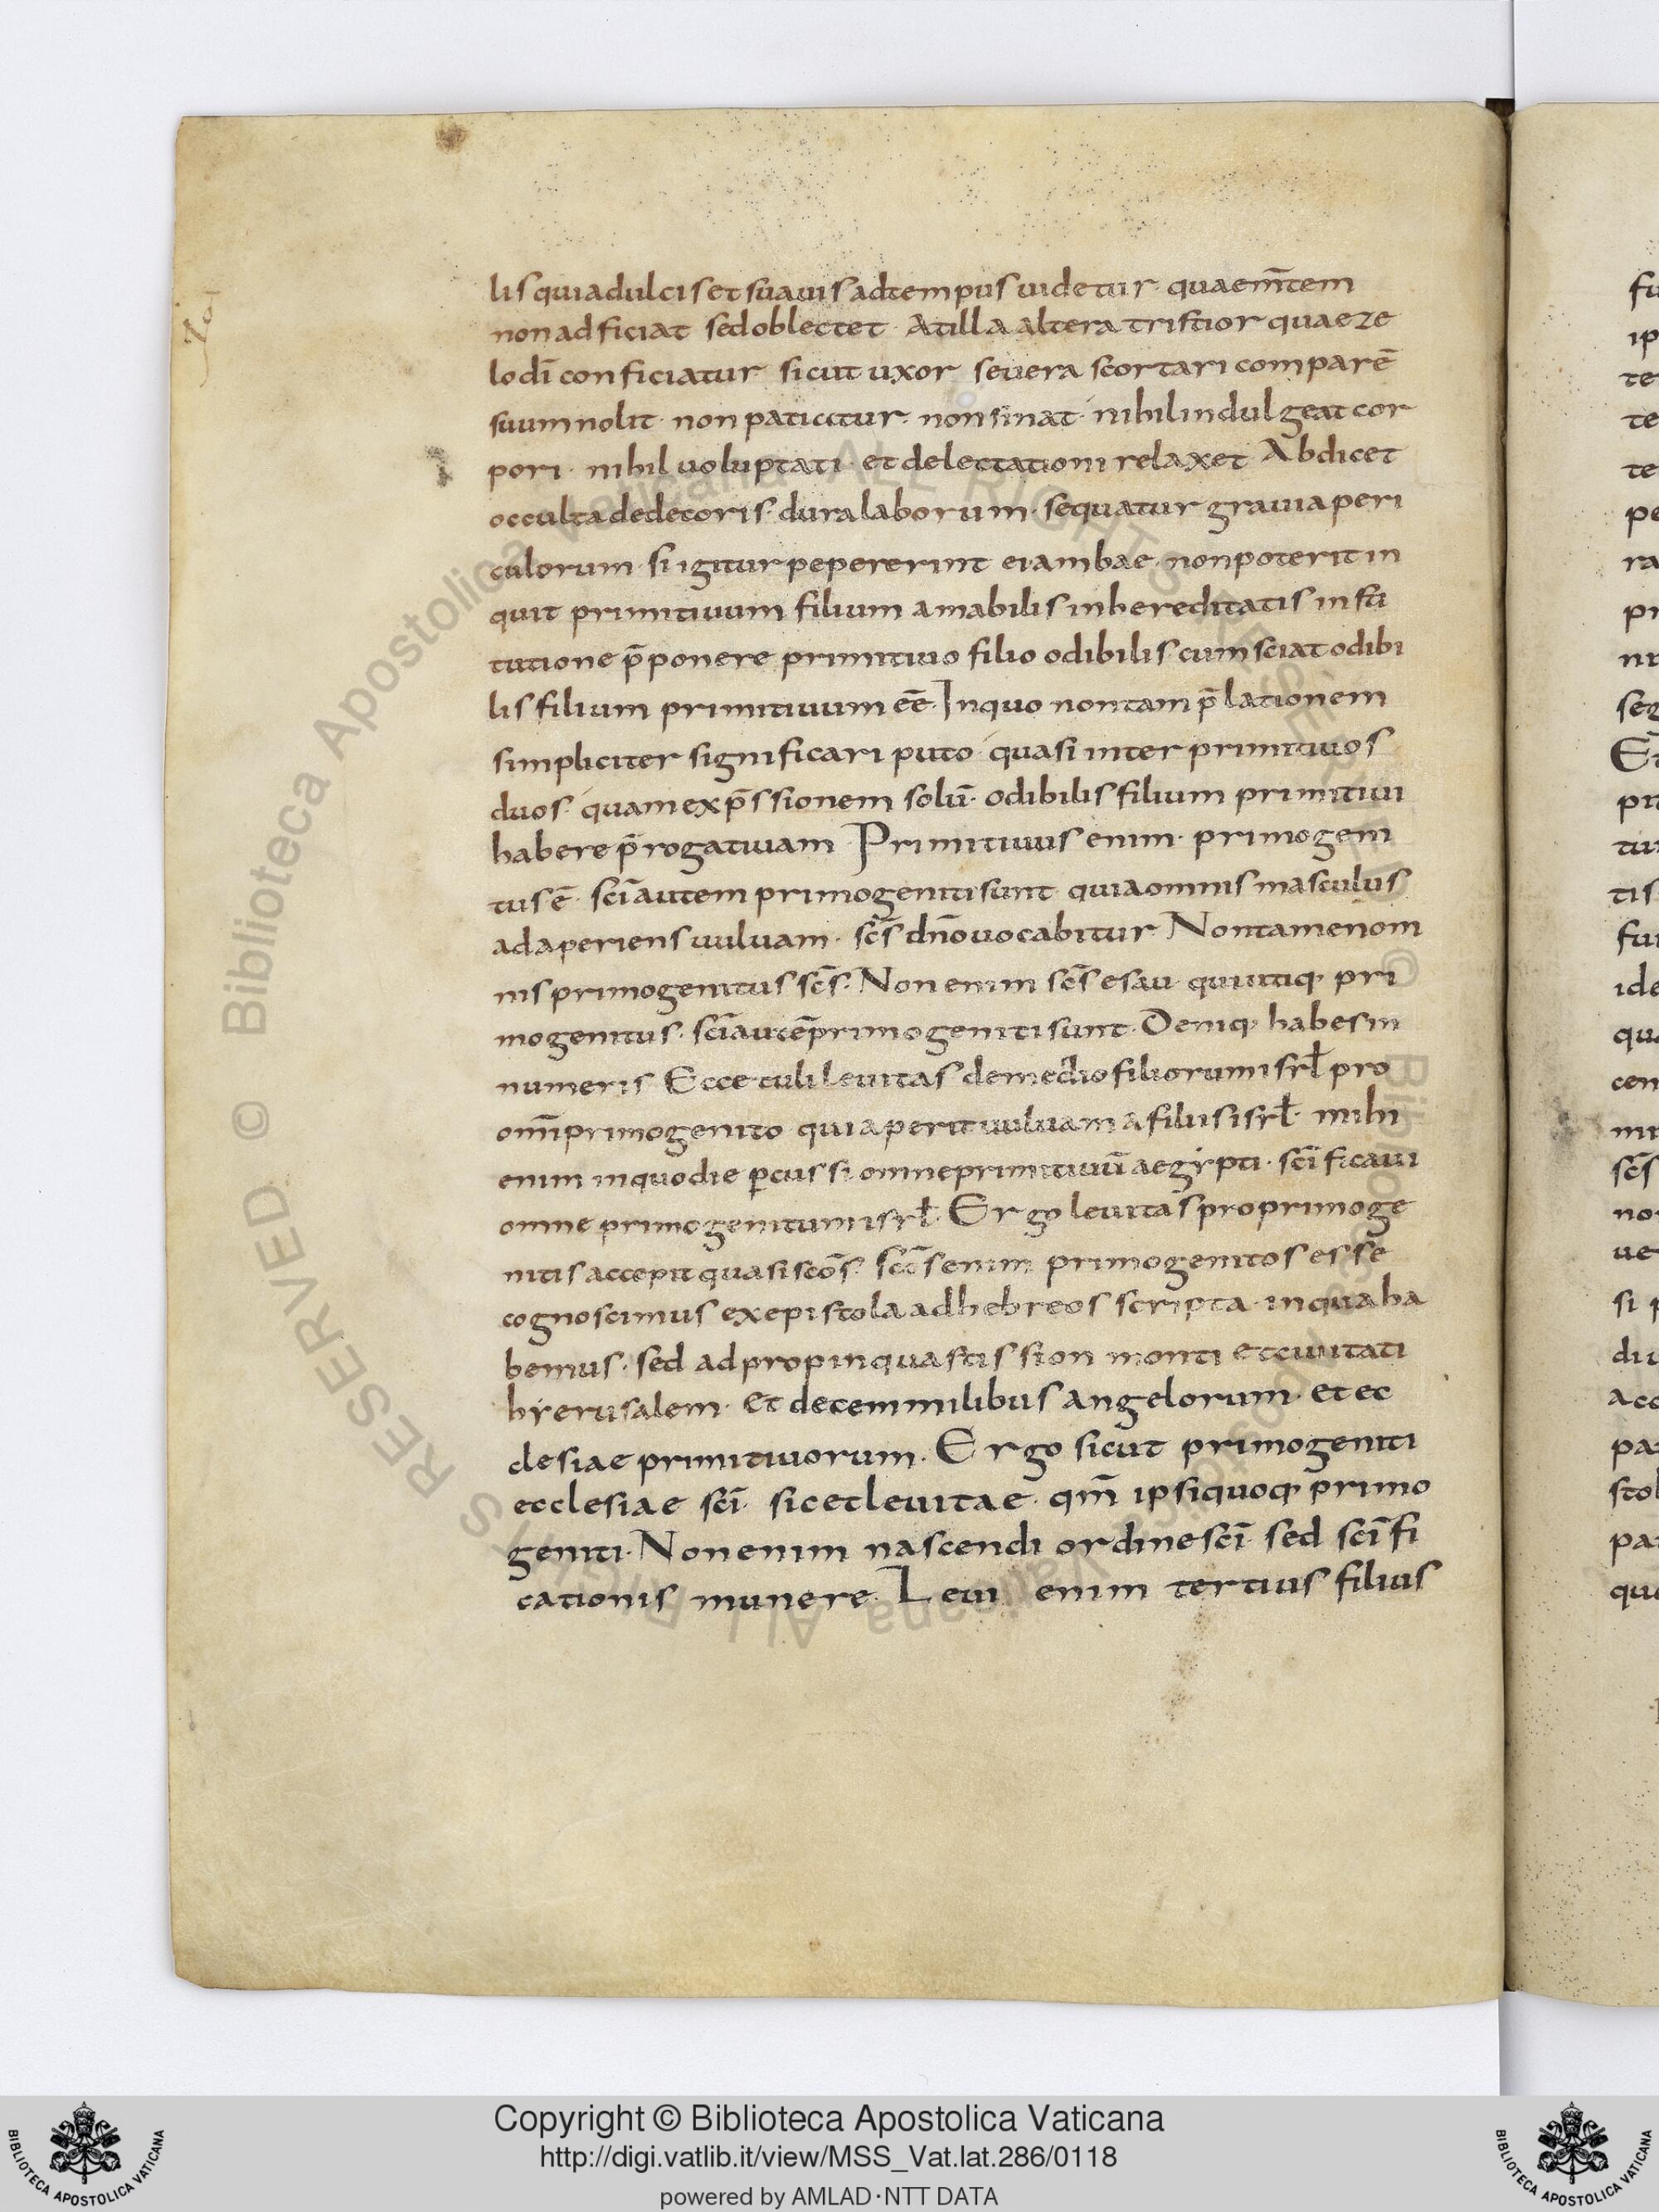 lis quia dulcis et suauis ad tempus uidetur· quae m̄tem
non adficiat sed oblectet· At illa altera tristior quae ze
lo dī conficiatur sicut uxor seuera scortari comparē
suum nolit· non patiatur· non sinat· nihil indulgeat cor
pori· nihil uoluptati· et delectationi relaxet Abdicet
occulta dedecoris· dura laborum· sequatur grauia peri
culorum· si igitur pepererint ei ambae· non poterit in
quit primitiuum filium amabilis in hereditatis insti
tutione p̄ponere primitiuo filio odibilis cum sciat odibi
lis filium primitiuum eē· In quo non tam p̄lationem
simpliciter significari puto· quasi inter primitiuos
duos· quam exp̄ssionem solū· odibilis filium primitiui
habere p̄rogatiuam· Primitiuus enim· primogeni
tus ē· scī autem primogeniti sunt quia omnis masculus
adaperiens uuluam· scs̄ dn̄o uocabitur· Non tamen om
nis primogenitus scs̄· Non enim scs̄ esau quiutiq· pri
mogenitus· scī autē primogeniti sunt· Deniq· habes in
numeris Ecce tuli leuitas de medio filiorum isrł pro
om̄i primogenito qui aperit uuluam a filiis isrł· mihi
enim in quo die p̱cussi omne primitiuū aegẏpti· scīficaui
omne primogenitum isrł· Ergo leuitas pro primoge
nitis accepit quasi scōs· scōs enim primogenitos esse
cognoscimus ex epistola ad hebreos scripta· in qua ha
bemus· sed adpropinquastis sion monti et ciuitati
hẏerusalem· et decem milibus angelorum· et ec
clesiae primitiuorum· Ergo sicut primogeniti
ecclesiae scī· sic et leuitae· qm̄ ipsi quoq· primo
geniti· Non enim nascendi ordine scī· sed scīfi
cationis munere· Leui enim tertius filius
Copyright © Biblioteca Apostolica Vaticana
http://digi.vatlib.it/view/MSS_Vat.lat.286/0118
powered by AMLAD·NTT DATA
BIBLIOTECA APOSTOLICA VATICANA
BIBLIOTECA APOSTOLICA VATICANA